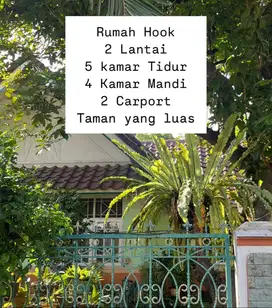 Rumah Hook
2 Lantai
5 kamar Tidur
4 Kamar Mandi
2 Carport
Taman yang luas